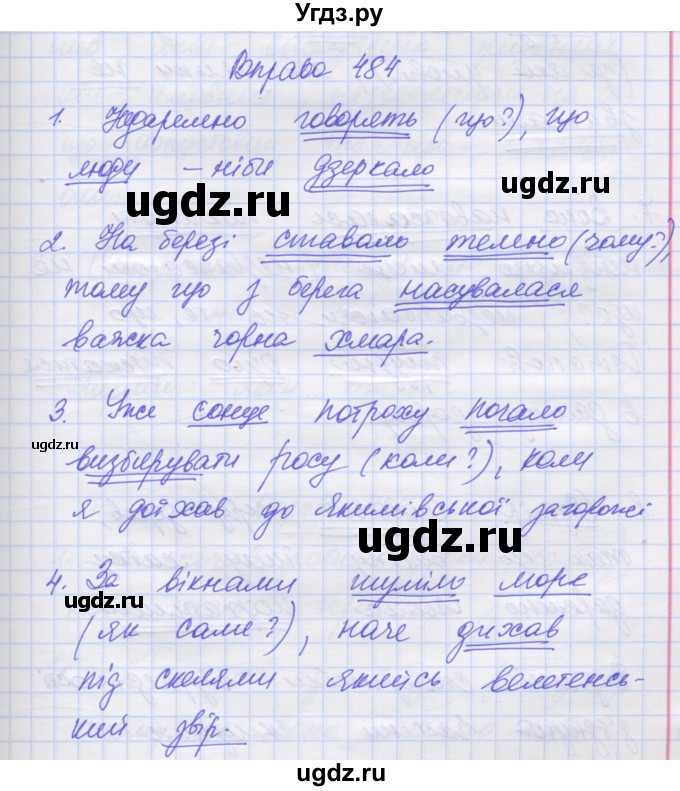 Угдз.ру
Вправа 484
ugdz.ru
1. Недаремно говорять (що?), що
люди – ніби дзеркало
ugdz.ru
2. На березі ставало темно (чому?),
тому що з берега насувалася
важка чорна хмара.
ugdz.ru
3. Уже сонце потроху почало
ugdz.ru
визбирувати росу (коли?), коли
я доїхав до Якимівської загорожі
ugdz.ru
4. За вікнами шуміло море
ugdz.ru
(як саме?), наче дихав
під скелями якийсь велетенсь-
кий звір.
ugdz.ru
ugdz.ru